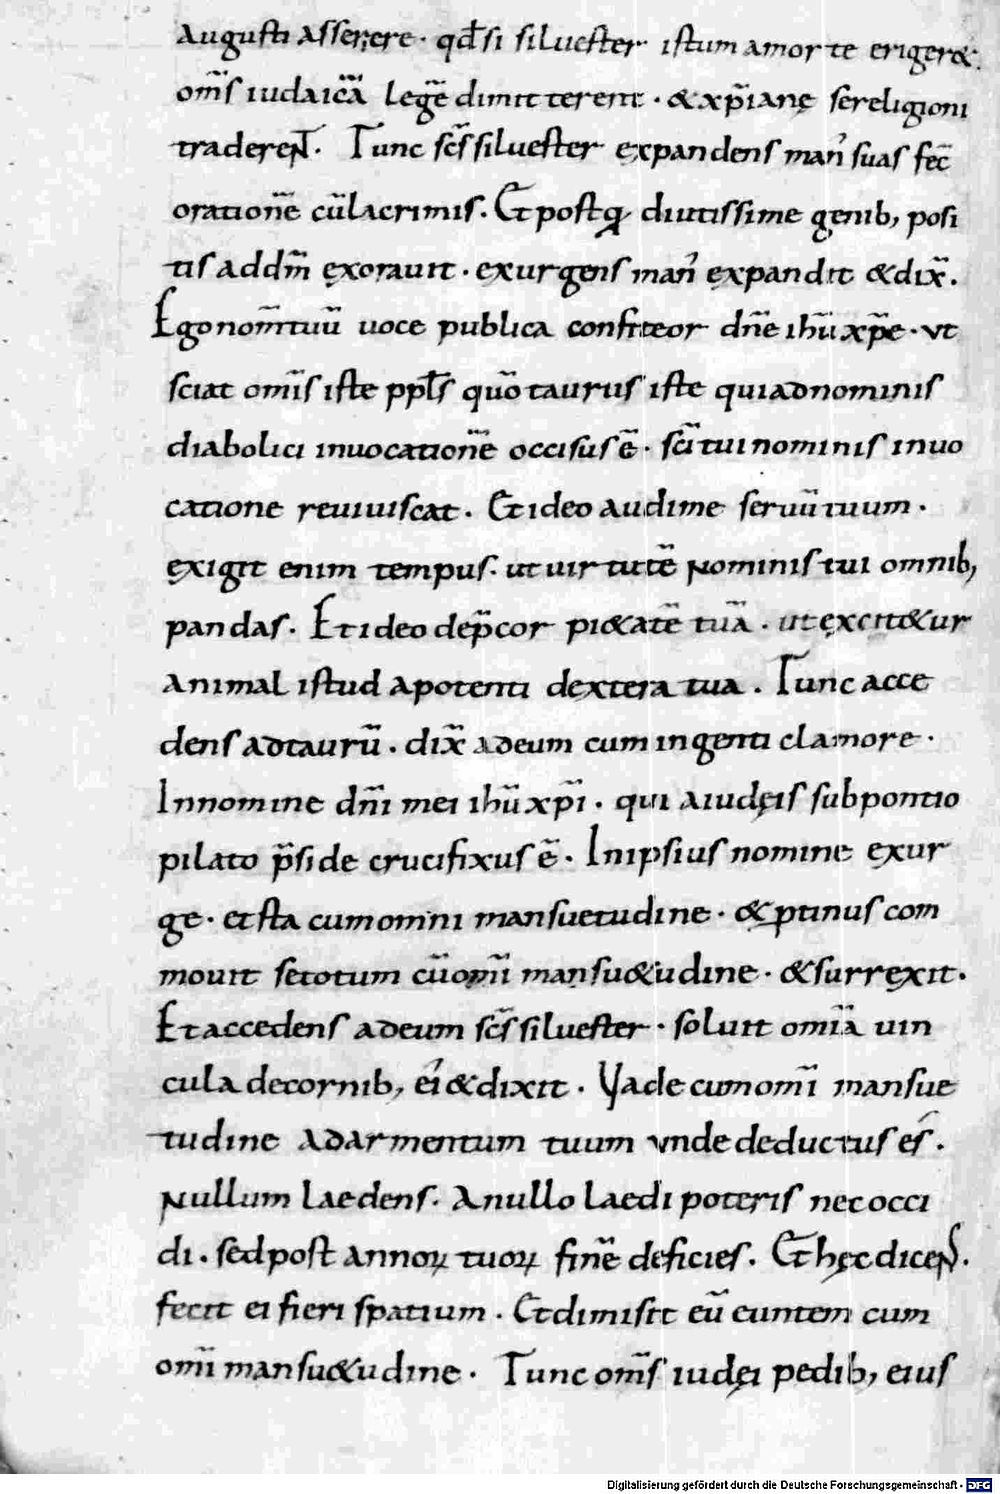 augusti asserere · qđ si siluester istum a morte eriger&.
om̄s iudaicā legē dimitterent · & xp̄ianę se religioni
traderent. Tunc scs̄ siluester expandens man᾽ suas fec̄
orationē cū lacrimis. Et postq̄ diutissime genib; posi
tis ad dm̄ exorauit · exurgens man᾽ expandit & dix̄.
Ego nom̄ tuū uoce publica confiteor dn̄e ihū xp̄e · ut
sciat om̄is iste ppl̄s quō taurus iste qui ad nominis
diabolici inuocationē occisus ē · sc̄i tui nominis inuo
catione reuiuiscat. Et ideo audi me seruū tuum ·
exigit enim tempus · ut uirtutē nominis tui omnib;
pandas. Et ideo dep̄cor pi&atē tuā · ut excit&ur
animal istud a potenti dextera tua. Tunc acce
dens ad taurū · dix̄ ad eum cum ingenti clamore ·
In nomine dn̄i mei ihū xp̄i · qui a iudęis sub pontio
pilato p̄side crucifixus ē · In ipsius nomine exur
ge · et sta cum omni mansuetudine · & ꝓtinus com
mouit se totum cū omī mansu&udine · & surrexit.
Et accedens ad eum scs̄ siluester · soluit om̄ia uin
cula de cornib; ei᾽ & dixit. Vade cum om̄i mansue
tudine ad armentum tuum unde deductus es.
Nullum laedens. A nullo laedi poteris nec occi
di. sed post annoꝝ tuoꝝ finē deficies. Et hęc dicens.
fecit ei fieri spatium. Et dimisit eū euntem cum
om̄i mansu&udine. Tunc om̄s iudęi pedib; eius
Digitalisierung gefördert durch die Deutsche Forschungsgemeinschaft - DFG